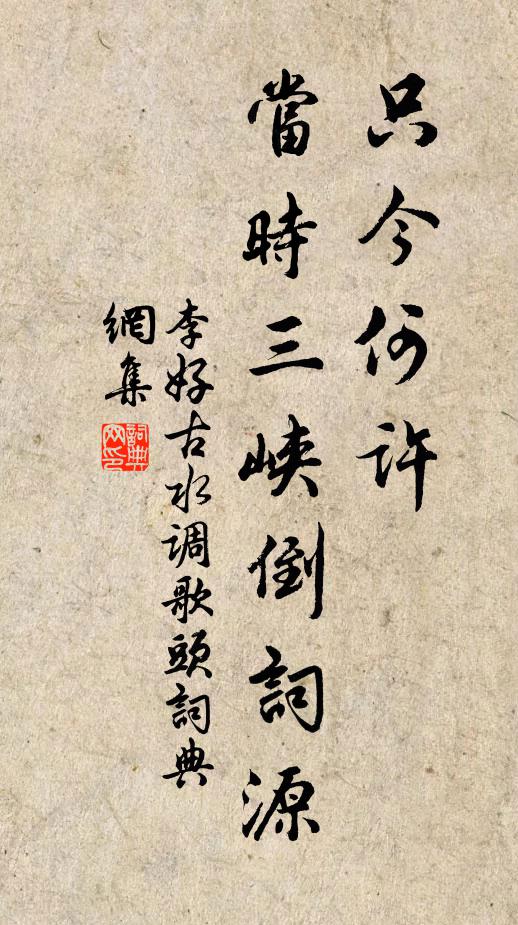 只今何許
當時三峽倒詞源
李好古水调歌頭詞典
網集
詞典
网印